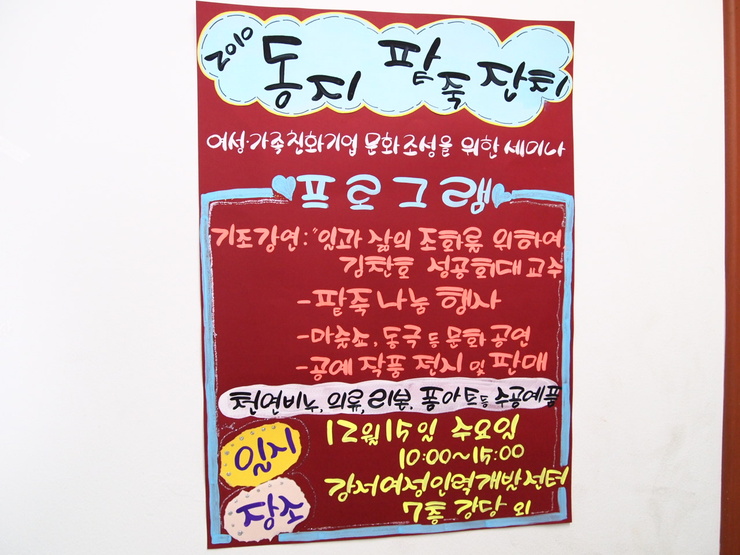 2010 동지 팥죽 잔치
여성·가족친화기업 문화조성을 위한 세미나
프로그램
기조강연: "일과 삶의 조화를 위하여
김찬호 성공회대교수
-팥죽 나눔 행사
-마술쇼, 동극 등 문화 공연
-공예 작품 전시 및 판매
천연비누, 의류, 리본, 폼아트등 수공예품
일시 12월15일 수요일
10:00~15:00
장소 강서여성인력개발센터
7층 강당 외